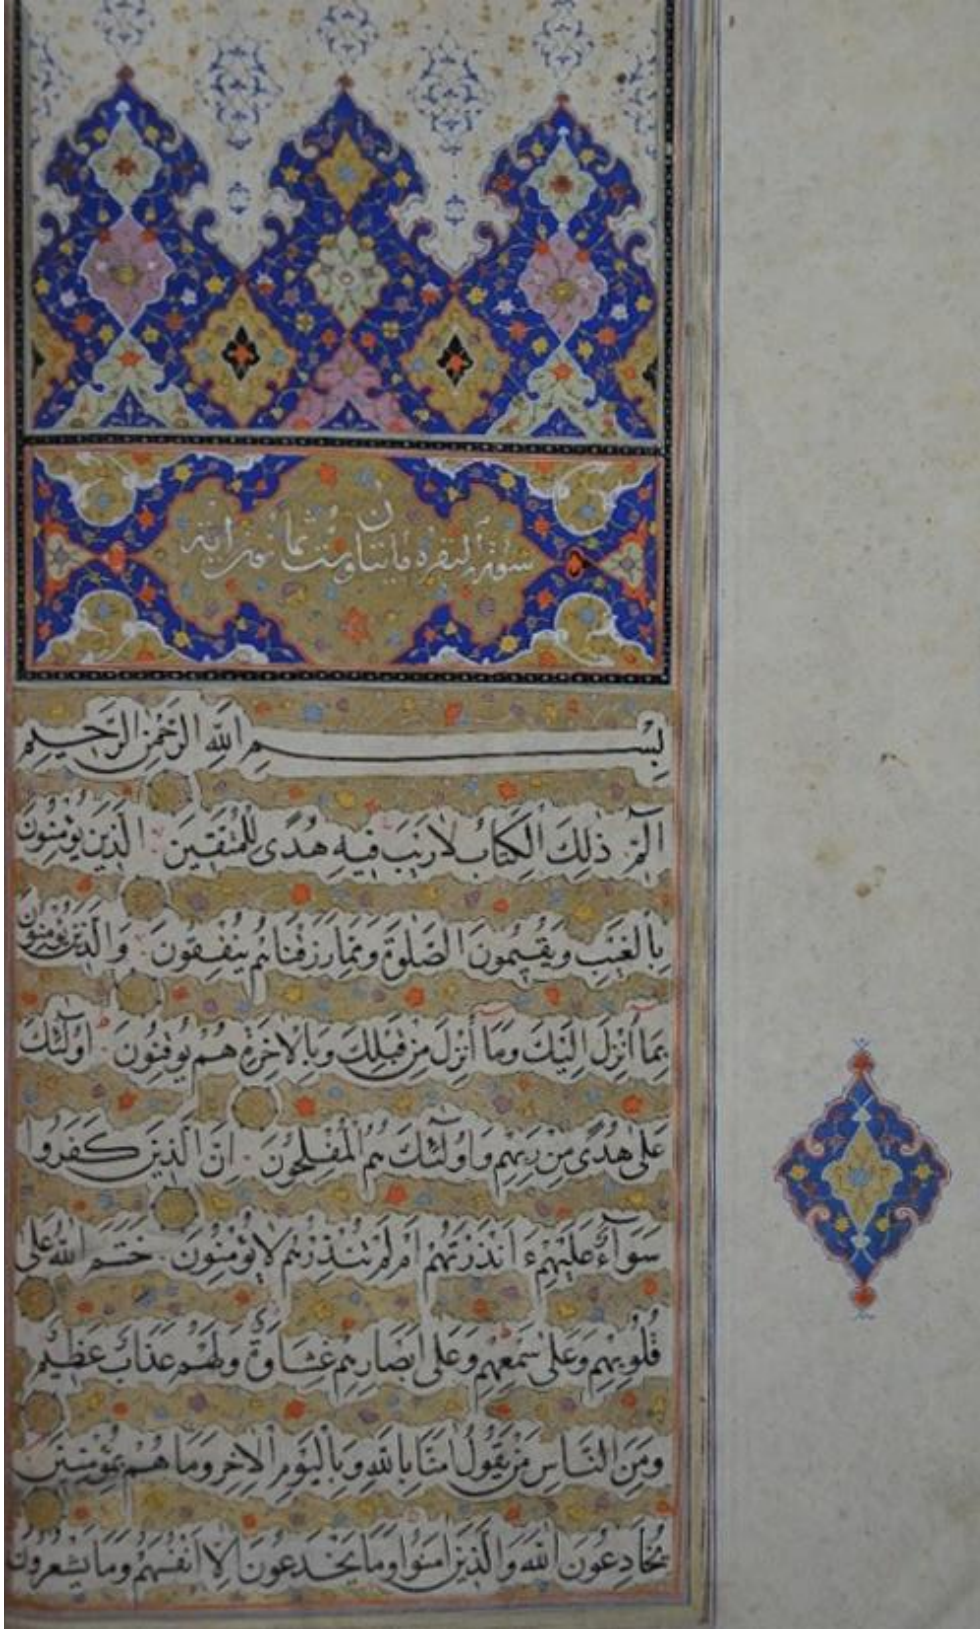 سورة البقرة مايتا وست ثمانون اية
بِسْمِ اللَّهِ الرَّحْمٰنِ الرَّحِيمِ
الٓمٓ ذٰلِكَ الْكِتَابُ لَا رَيْبَ فِيهِ هُدًى لِلْمُتَّقِينَ الَّذِينَ يُؤْمِنُونَ
بِالْغَيْبِ وَيُقِيمُونَ الصَّلٰوةَ وَمِمَّا رَزَقْنَاهُمْ يُنْفِقُونَ وَالَّذِينَ يُؤْمِنُونَ
بِمَآ اُنْزِلَ اِلَيْكَ وَمَآ اُنْزِلَ مِنْ قَبْلِكَ وَبِالْاٰخِرَةِ هُمْ يُوقِنُونَ اُولٰٓئِكَ
عَلٰى هُدًى مِنْ رَبِّهِمْ وَاُولٰٓئِكَ هُمُ الْمُفْلِحُونَ اِنَّ الَّذِينَ كَفَرُوا
سَوَآءٌ عَلَيْهِمْ ءَاَنْذَرْتَهُمْ اَمْ لَمْ تُنْذِرْهُمْ لَا يُؤْمِنُونَ خَتَمَ اللّٰهُ عَلٰى
قُلُوبِهِمْ وَعَلٰى سَمْعِهِمْ وَعَلٰى اَبْصَارِهِمْ غِشَاوَةٌ وَلَهُمْ عَذَابٌ عَظِيمٌ
وَمِنَ النَّاسِ مَنْ يَقُولُ اٰمَنَّا بِاللّٰهِ وَبِالْيَوْمِ الْاٰخِرِ وَمَا هُمْ بِمُؤْمِنِينَ
يُخَادِعُونَ اللّٰهَ وَالَّذِينَ اٰمَنُوا وَمَا يَخْدَعُونَ اِلَّا اَنْفُسَهُمْ وَمَا يَشْعُرُونَ